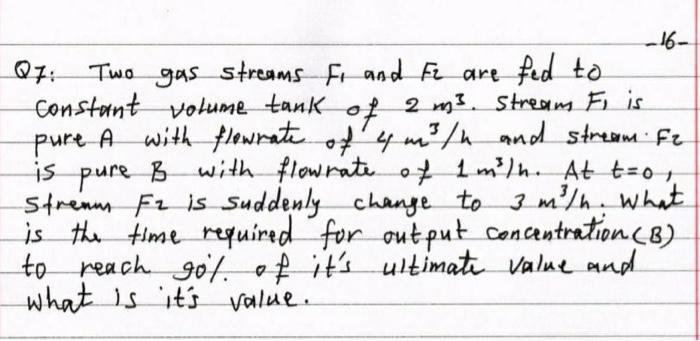 -16-
Q7: Two gas streams F1 and F2 are fed to
constant volume tank of 2 m³. Stream F1 is
pure A with flowrate of 4 m³/h and stream F2
is pure B with flowrate of 1 m³/h. At t=0,
stream F2 is suddenly change to 3 m³/h. What
is the time required for output concentration (B)
to reach 90% of it's ultimate value and
what is it's value.